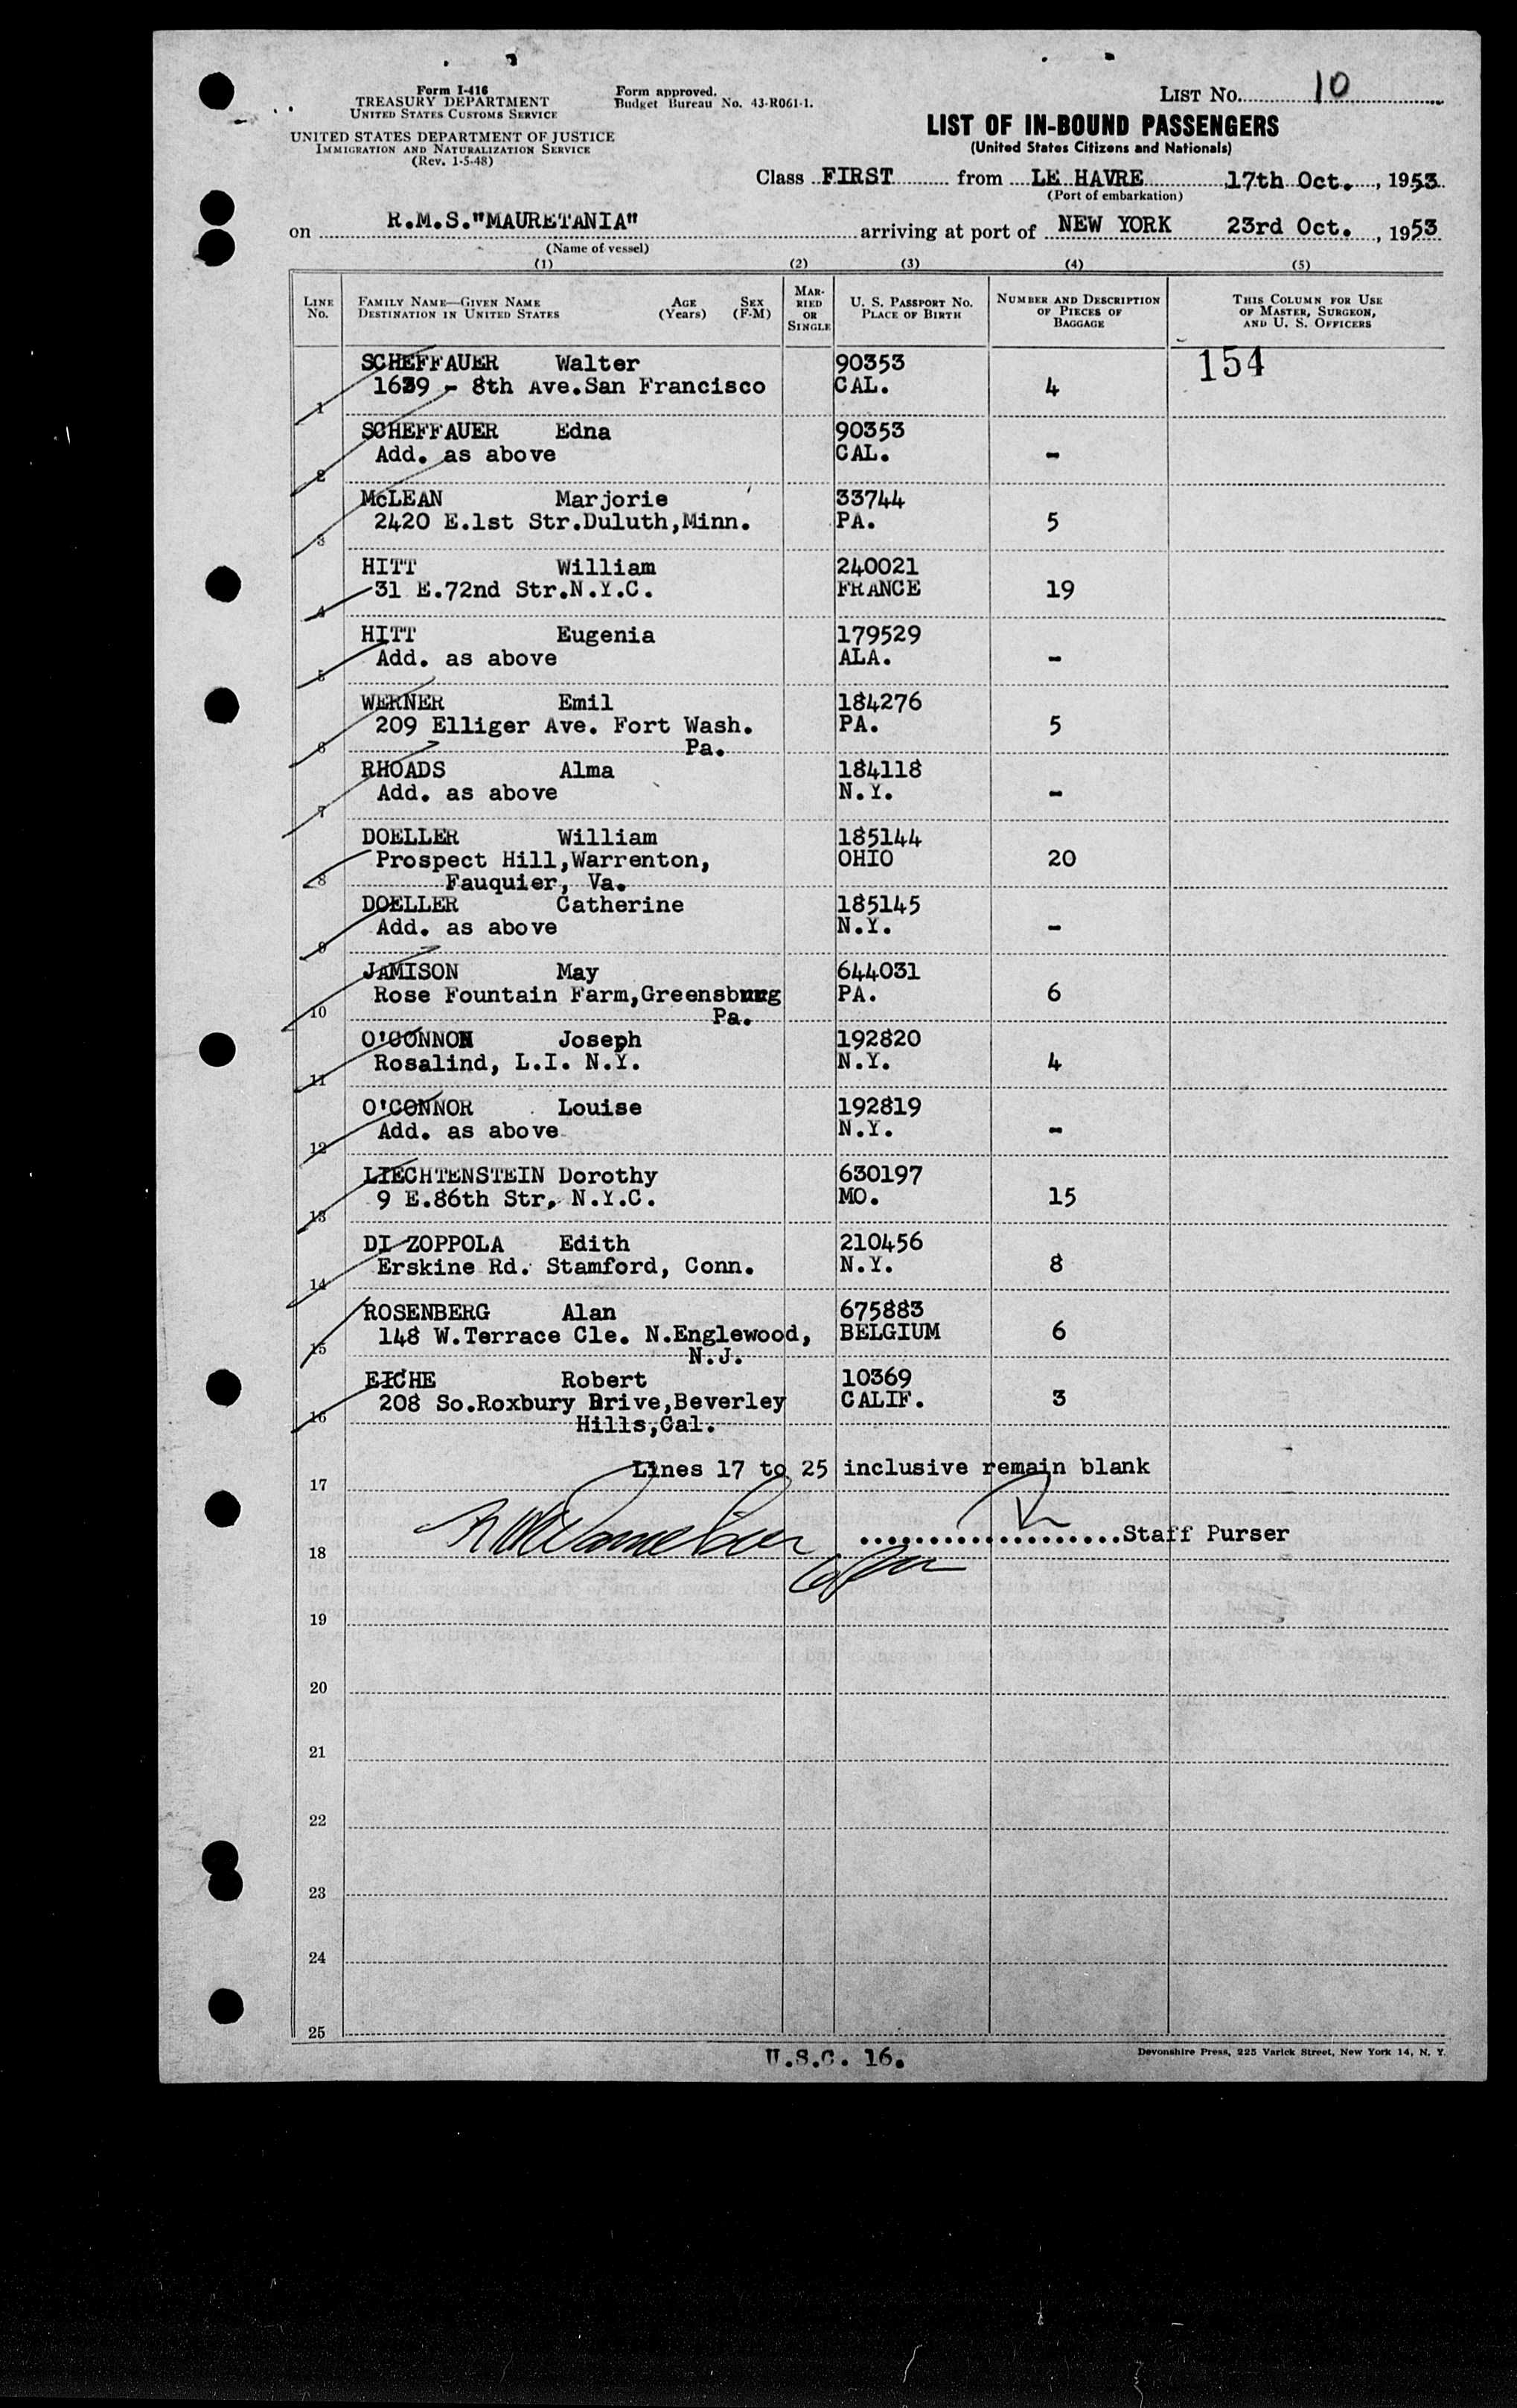 Form I-416
TREASURY DEPARTMENT
UNITED STATES CUSTOMS SERVICE
UNITED STATES DEPARTMENT OF JUSTICE
IMMIGRATION AND NATURALIZATION SERVICE
(Rev. 1-5-48)
Form approved.
Budget Bureau No. 43-R061-1.
LIST NO. 10
LIST OF IN-BOUND PASSENGERS
(United States Citizens and Nationals)
Class FIRST from LE HAVRE 17th Oct., 1953
(Port of embarkation)
on R.M.S."MAURETANIA" arriving at port of NEW YORK 23rd Oct., 1953
(Name of vessel)
(1) (2) (3) (4) (5)
LINE NO.
FAMILY NAME—GIVEN NAME
DESTINATION IN UNITED STATES
AGE (Years)
SEX (F-M)
MARRIED OR SINGLE
U. S. PASSPORT NO.
PLACE OF BIRTH
NUMBER AND DESCRIPTION
OF PIECES OF
BAGGAGE
THIS COLUMN FOR USE
OF MASTER, SURGEON,
AND U. S. OFFICERS
154
SCHEFFAUER Walter 90353
1 1639 - 8th Ave.San Francisco CAL. 4
SCHEFFAUER Edna 90353
2 Add. as above CAL. -
McLEAN Marjorie 33744
3 2420 E.1st Str.Duluth,Minn. PA. 5
HITT William 240021
4 31 E.72nd Str.N.Y.C. FRANCE 19
HITT Eugenia 179529
5 Add. as above ALA. -
WERNER Emil 184276
6 209 Elliger Ave. Fort Wash. PA. 5
Pa.
RHOADS Alma 184118
7 Add. as above N.Y. -
DOELLER William 185144
8 Prospect Hill,Warrenton, OHIO 20
Fauquier, Va.
DOELLER Catherine 185145
9 Add. as above N.Y. -
JAMISON May 644031
10 Rose Fountain Farm,Greensburg PA. 6
Pa.
O'CONNOR Joseph 192820
11 Rosalind, L.I. N.Y. N.Y. 4
O'CONNOR Louise 192819
12 Add. as above N.Y. -
LIECHTENSTEIN Dorothy 630197
13 9 E.86th Str, N.Y.C. MO. 15
DI ZOPPOLA Edith 210456
14 Erskine Rd. Stamford, Conn. N.Y. 8
ROSENBERG Alan 675883
15 148 W.Terrace Cle. N.Englewood, BELGIUM 6
N.J.
EICHE Robert 10369
16 208 So.Roxbury Drive,Beverley CALIF. 3
Hills,Cal.
Lines 17 to 25 inclusive remain blank
17
....................Staff Purser
18
19
20
21
22
23
24
25
U.S.C. 16.
Devonshire Press, 225 Varick Street, New York 14, N. Y.